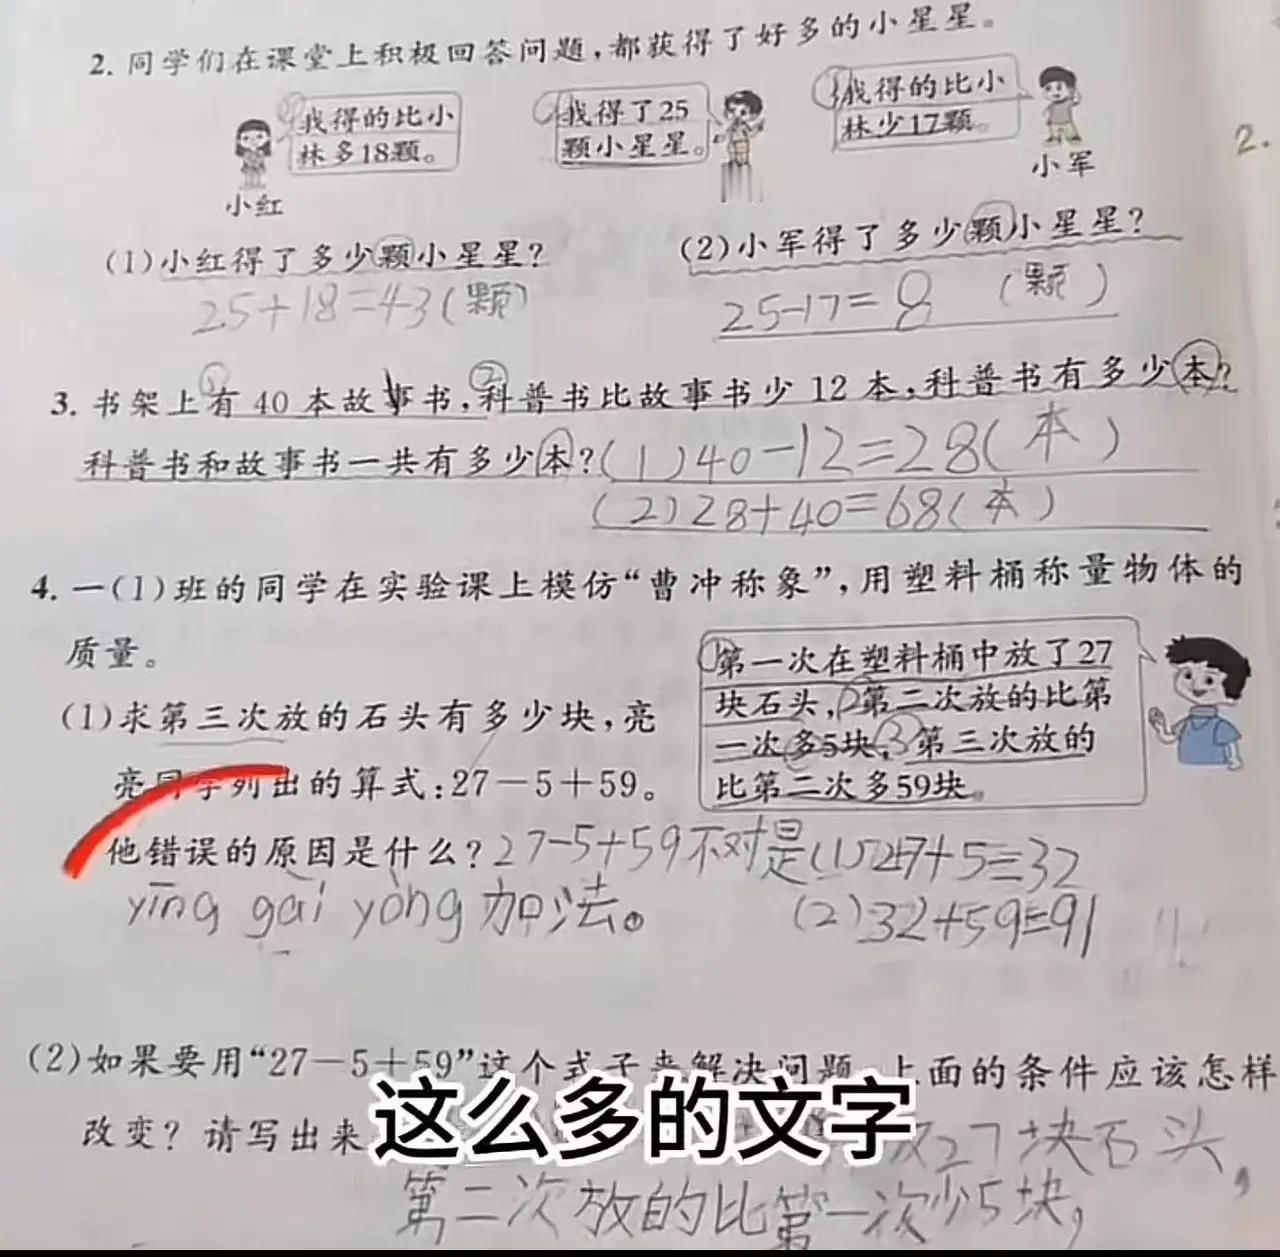 2. 同学们在课堂上积极回答问题,都获得了好多的小星星。
我得的比小
林多18颗。
小红
我得了25
颗小星星。
我得的比小
林少17颗。
小军
2.
(1)小红得了多少颗小星星?
25+18=43(颗)
(2)小军得了多少颗小星星?
25-17=8 (颗)
3. 书架上有40本故事书,科普书比故事书少12本,科普书有多少本?
科普书和故事书一共有多少本?(1)40-12=28(本)
(2)28+40=68(本)
4. 一(1)班的同学在实验课上模仿“曹冲称象”,用塑料桶称量物体的
质量。
①第一次在塑料桶中放了27
块石头,②第二次放的比第
一次多5块,③第三次放的
比第二次多59块。
(1)求第三次放的石头有多少块,亮
亮同学列出的算式:27-5+59。
他错误的原因是什么?27-5+59不对是(1)27+5=32
yīng gāi yòng 加法。 (2)32+59=91
(2)如果要用“27-5+59”这个式子来解决问题,上面的条件应该怎样
改变? 请写出来
次27块石头,
第二次放的比第一次少5块,
这么多的文字